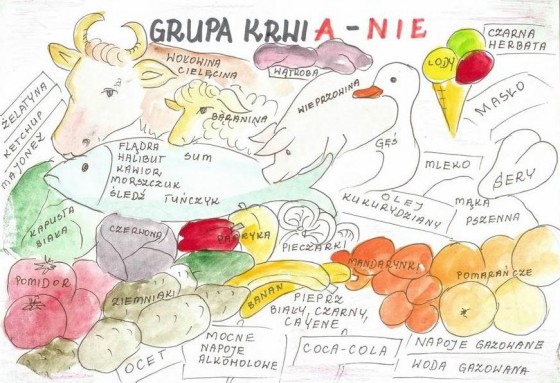 GRUPA KRWI A - NIE
WOŁOWINA
CIELĘCINA
WĄTROBA
LODY
CZARNA
HERBATA
ŻELATYNA
KETCHUP
MAJONEZ
BARANINA
WIEPRZOWINA
GĘŚ
MASŁO
FLĄDRA
HALIBUT
KAWIOR
MORSZCZUK
ŚLEDŹ
SUM
TUŃCZYK
MLEKO
SERY
OLEJ
KUKURYDZIANY
MĄKA
PSZENNA
KAPUSTA
BIAŁA
CZERWONA
PAPRYKA
PIECZARKI
MANDARYNKI
POMARAŃCZE
POMIDOR
ZIEMNIAKI
BANAN
PIEPRZ
BIAŁY, CZARNY,
CAYENE
OCET
MOCNE
NAPOJE
ALKOHOLOWE
COCA-COLA
NAPOJE GAZOWANE
WODA GAZOWANA